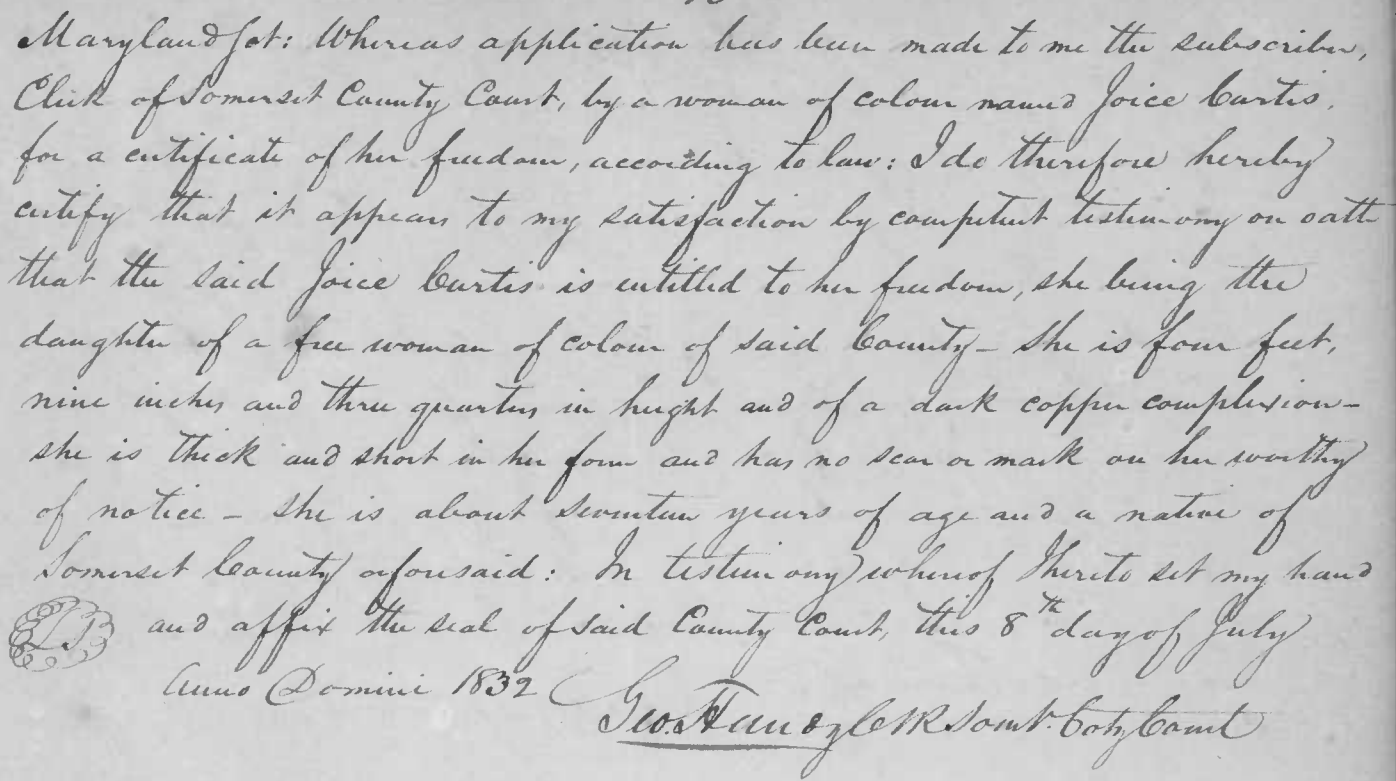 Maryland Sct: Whereas application has been made to me the subscriber,
Clerk of Somerset County Court, by a woman of colour named Joice Curtis,
for a certificate of her freedom, according to law: I do therefore hereby
certify that it appears to my satisfaction by competent testimony on oath
that the said Joice Curtis is entitled to her freedom, she being the
daughter of a free woman of colour of said County - she is four feet,
nine inches and three quarters in height and of a dark copper complexion -
she is thick and short in her form and has no scar or mark on her worthy
of notice - she is about seventeen years of age and a native of
Somerset County aforesaid: In testimony whereof I hereto set my hand
LS and affix the seal of said County Court, this 8th day of July
Anno Domini 1832
Geo. Handy Clk Somt. Coty Court